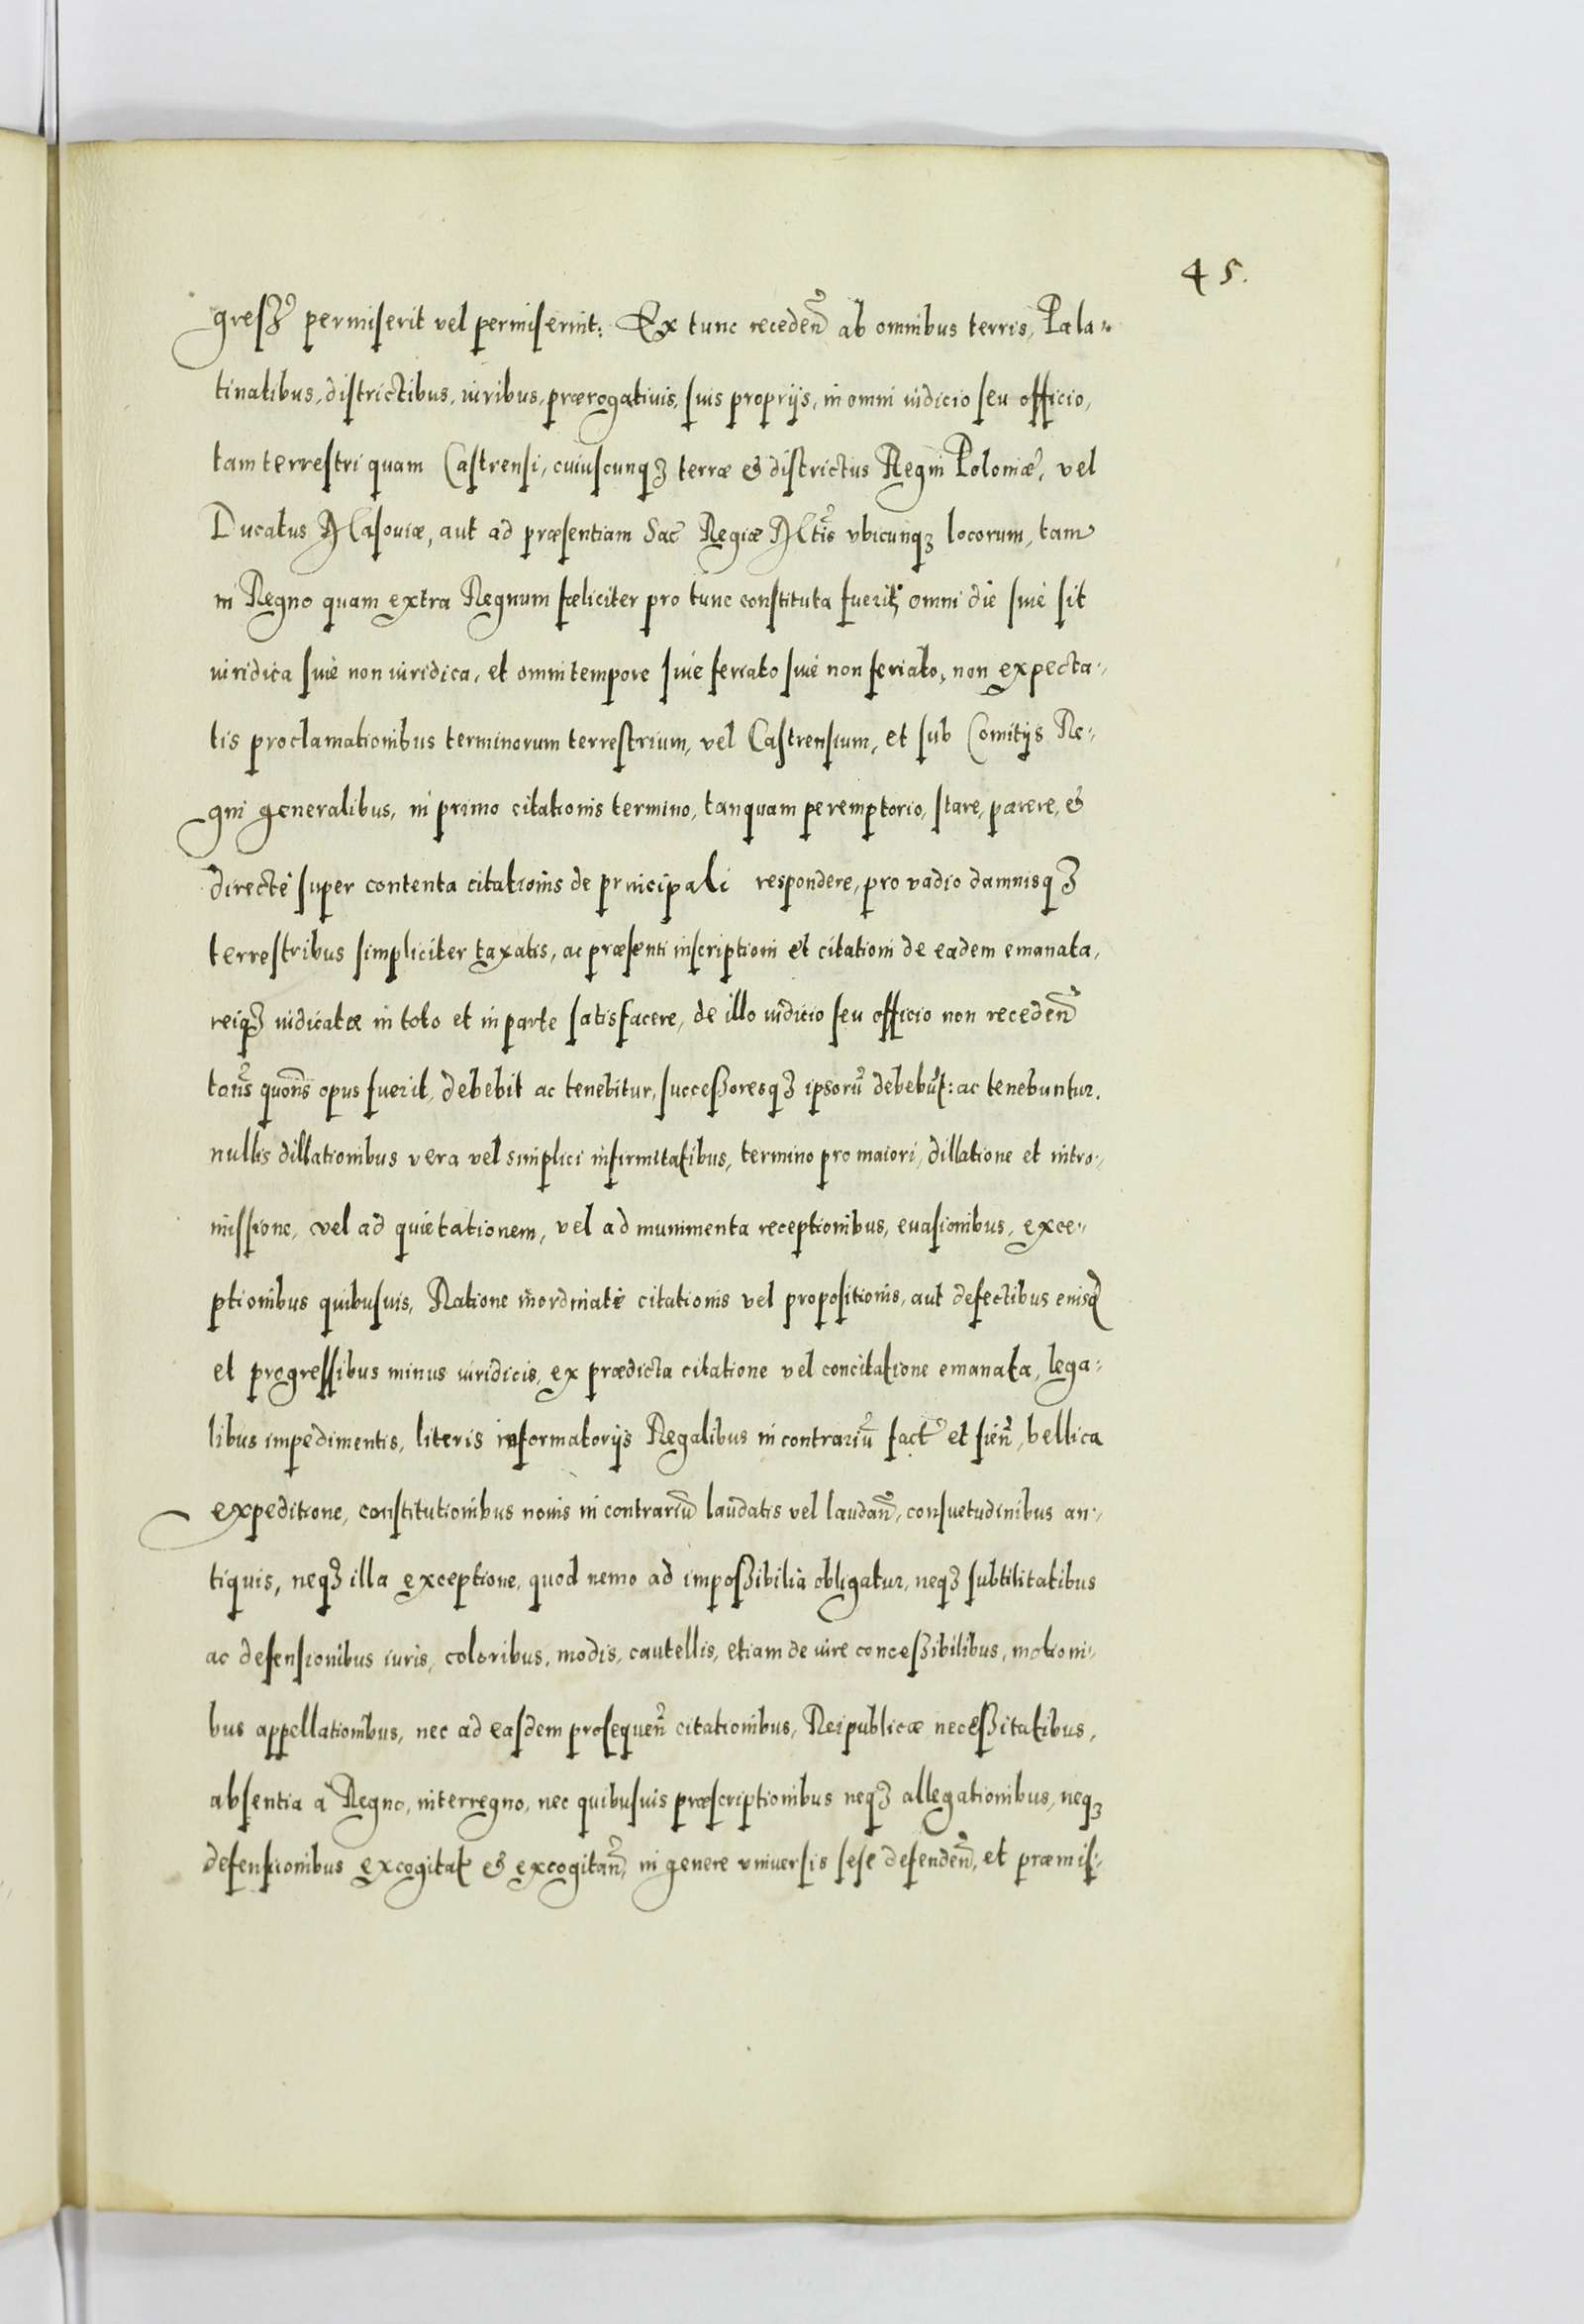 45.
greß permiserit vel permiserint: Ex tunc receden̄ ab omnibus terris, Pala-
tinatibus, districtibus, iuribus, prærogatiuis, suis proprijs, in omni iudicio seu officio,
tam terrestri quam Castrensi, cuiuscunqꝫ terræ & districtus Regni Poloniæ, vel
Ducatus Masouiæ, aut ad præsentiam Sac Regiæ Mtis vbicunqꝫ locorum, tam
in Regno quam extra Regnum fæliciter pro tunc constituta fuerit, omni die siue sit
iuridica siue non iuridica, et omni tempore siue feriato siue non feriato, non expecta-
tis proclamationibus terminorum terrestrium, vel Castrensium, et sub Comitijs Re-
gni generalibus, in primo citationis termino, tanquam peremptorio, stare, parere, &
directè super contenta citationis de principali respondere, pro vadio damnisqꝫ
terrestribus simpliciter taxatis, ac præsenti inscriptioni et citationi de eadem emanata,
reiqꝫ iudicatæ in toto et in parte satisfacere, de illo iudicio seu officio non receden̄
toñs quoñs opus fuerit, debebit ac tenebitur, successoresqꝫ ipsorū debebūt: ac tenebuntur.
nullis dillationibus vera vel simplici infirmitatibus, termino pro maiori, dillatione et intro-
missione, vel ad quietationem, vel ad munimenta receptionibus, euasionibus, exce-
ptionibus quibusuis, Ratione inordinatè citationis vel propositionis, aut defectibus eiusd
et progressibus minus iuridicis, ex prædicta citatione vel concitatione emanata, lega-
libus impedimentis, literis informatorijs Regalibus in contrariū fact et fień, bellica
expeditione, constitutionibus nouis in contrariū laudatis vel laudan̄, consuetudinibus an-
tiquis, neqꝫ illa exceptione, quod nemo ad impoßibilia obligatur, neqꝫ subtilitatibus
ac defensionibus iuris, coloribus, modis, cautellis, etiam de iure conceßibilibus, motioni-
bus appellationibus, nec ad easdem prosequen̄ citationibus, Reipublicæ neceßitatibus,
absentia à Regno, interregno, nec quibusuis præscriptionibus neqꝫ allegationibus, neqꝫ
defensionibus excogitat & excogitan̄, in genere vniuersis sese defenden̄, et præmis-